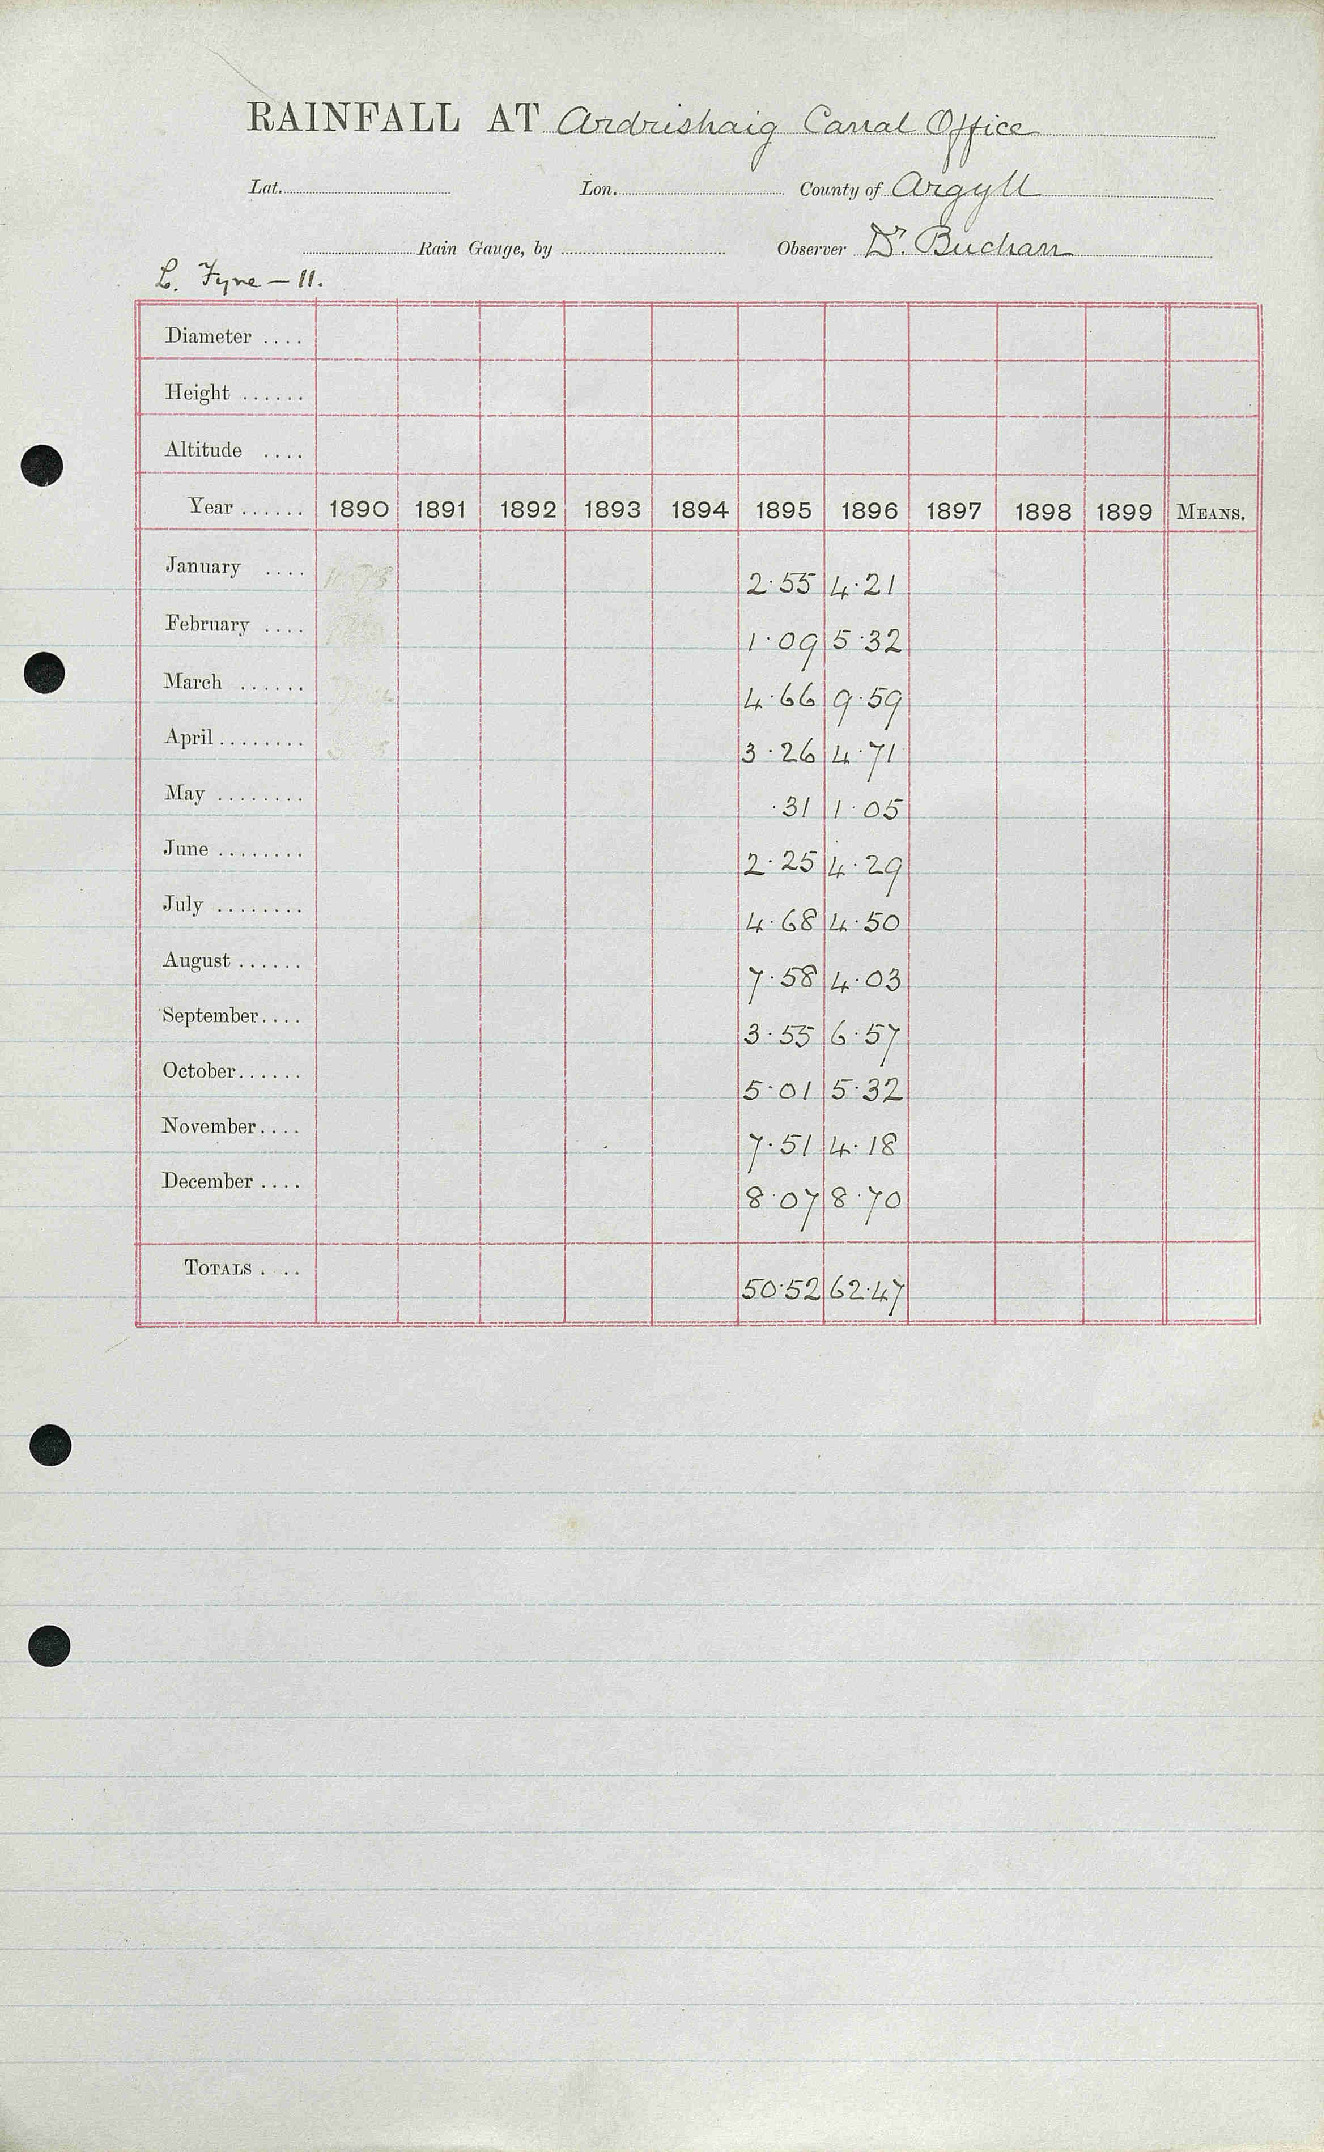 RAINFALL AT Ardrishaig Canal Office
Lat. Lon. County of Argyll
Rain Gauge, by Observer Dr. Buchan
L. Fyne — 11.
Diameter ....
Height ......
Altitude ....
Year ...... 1890 1891 1892 1893 1894 1895 1896 1897 1898 1899 MEANS.
January .... 2.55 4.21
February .... 1.09 5.32
March ...... 4.66 9.59
April ........ 3.26 4.71
May ........ .31 1.05
June ........ 2.25 4.29
July ........ 4.68 4.50
August ...... 7.58 4.03
September.... 3.55 6.57
October...... 5.01 5.32
November.... 7.51 4.18
December .... 8.07 8.70
TOTALS .... 50.52 62.47